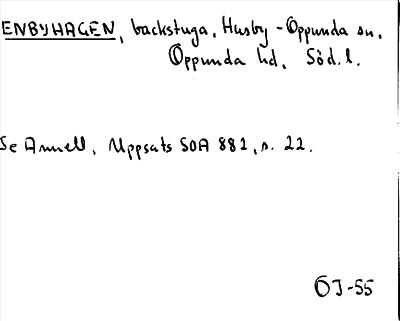 ENBYHAGEN, backstuga, Husby-Oppunda sn,
Oppunda hd, Söd. l.
Se Annell, Uppsats SOA 882, s. 22.
ÖJ-55